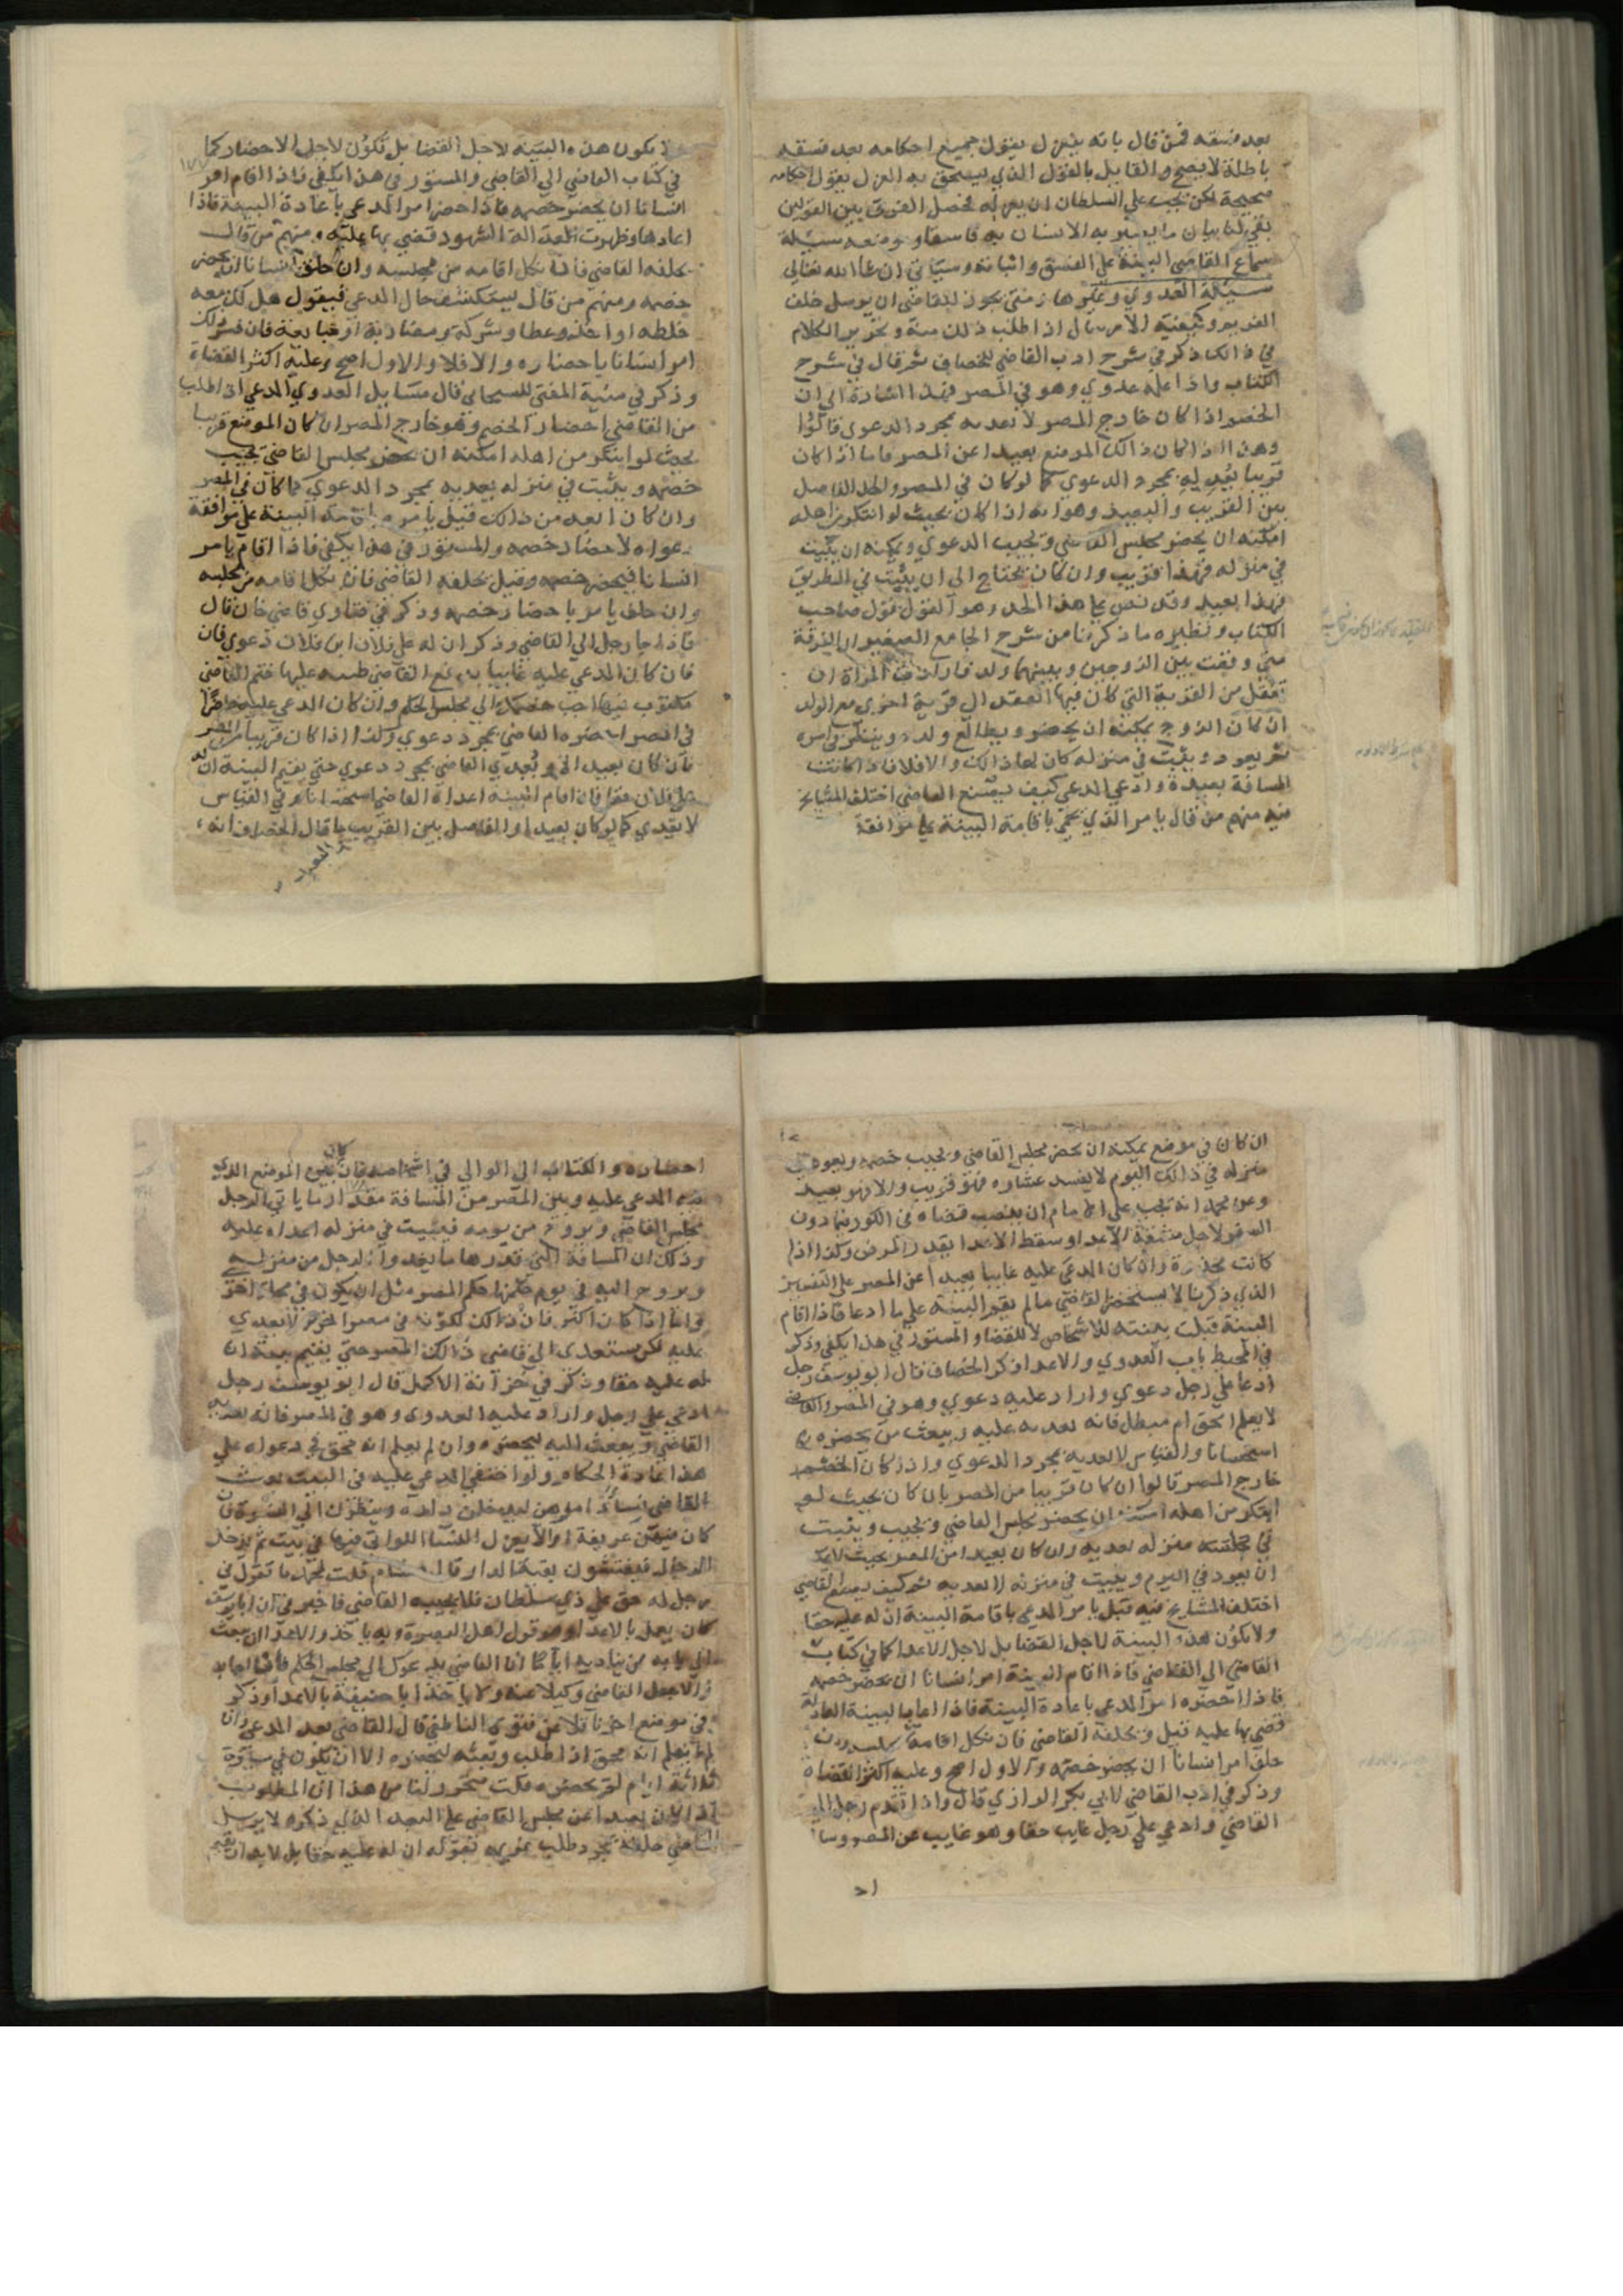 بعد فسقه فمن قال بانه ينعزل يقول جميع احكامه بعد فسقه
باطلة لا يصح والقايل بالقول الذي يستحق به العزل يقول احكامه
صحيحة لكن يجب على السلطان ان يعزله فحصل الفرق بين القولين
بقي لنا بيان ما يصير به الانسان به فاسقا وموضعه مسئلة
سماع القاضي البينة على الفسق واثباته وسياتي ان شا الله تعالى
مسئلة العدوي وغيرها متى يجوز للقاضي ان يرسل خلف
الغريم وكيفية الارسال اذا طلب ذلك منه وتحرير الكلام
في ذلك ذكر في شرح ادب القاضي للخصاف ثم قال في شرح
الكتاب واذا علم عدوي وهو في المصر فهذا اشارة الى ان
الخصم اذا كان خارج المصر لا يعديه بمجرد الدعوى قالوا
وهذا اذا كان ذالك الموضع بعيدا عن المصر فاما اذا كان
قريبا يعديه بمجرد الدعوى كما لو كان في المصر والحد الفاصل
بين القريب والبعيد وهو انه اذا كان بحيث لو ابتكر من اهله
امكنه ان يحضر مجلس القاضي ويجيب الدعوي ويمكنه ان يبيت
في منزله فهذا قريب وان كان يحتاج الى ان يبيت في الطريق
فهذا بعيد وقد نص على هذا الحد وهو القول قول صاحب
الكتاب ونظيره ما ذكرنا من شرح الجامع الصغير ان الفرقة
متى وقعت بين الزوجين وبينهما ولد فارادت المراة ان
تنتقل من القرية التي كان فيها العقد الى قرية اخرى مع الولد
ان كان الزوج يمكنه ان يحضر ويطالع ولده وينظر في امره
ثم يعود ويبيت في منزله كان لها ذالك والا فلا فاذا كانت
المسافة بعيدة وادعى المدعي كيف يصنع القاضي اختلف المشايخ
فيه منهم من قال يامر الذي يحي باقامة البينة على موافقة
تكون هذه البينة لاجل القضا بل تكون لاجل الاحضار كما
في كتاب القاضي الى القاضي والمستور في هذا يكفي فاذا اقام امر
انسانا ان يحضر خصمه فاذا حضر امر المدعي باعادة البينة فاذا
اعادها وظهرت عدالة الشهود قضي بها عليه ومنهم من قال
يحلفه القاضي فان نكل اقامه من مجلسه وان حلف امر انسانا ان يحضر
خصمه ومنهم من قال يستكشف حال المدعي فيقول هل لك معه
خلطه او اخذ وعطا وشركة ومضاربة او مبايعة فان فسر ذلك
امر انسانا باحضاره والا فلا والاول اصح وعليه اكثر القضاة
وذكر في منية المفتي للسجستاني قال مسايل العدوي المدعي اذا طلب
من القاضي احضار الخصم وهو خارج المصر ان كان الموضع قريبا
بحيث لو ابتكر من اهله امكنه ان يحضر مجلس القاضي يجيب
خصمه ويبيت في منزله يعديه بمجرد الدعوي كما كان في المصر
وان كان ابعد من ذلك قيل يامره باقامة البينة على موافقة
دعواه لاحضار خصمه والمستور في هذا يكفي فاذا اقام يامر
انسانا فيحضر خصمه وقيل يحلفه القاضي فان نكل اقامه من مجلسه
وان حلف يامر باحضار خصمه وذكر في فتاوي قاضي خان قال
فاذا جا رجل الى القاضي وذكر ان له على فلان ابن فلان دعوي فان
فان كان المدعى عليه غايبا
في المصر احضره القاضي بمجرد دعوي وكذا اذا كان قريبا من المصر
فان كان بعيدا لا يعدي القاضي بمجرد دعوي حتى يقيم البينة ان له
على فلان حقا فان اقام البينة اعداه القاضي استحسانا وفي القياس
لا يعدي كما لو كان بعيدا والفاصل بين القريب ما قال الخصاف انه
والبعيد
ان كان في موضع يمكنه ان يحضر مجلس القاضي ويجيب خصمه ويعود الى
منزله في ذالك اليوم لا يفسد عشاره فهو قريب والا فهو بعيد
وعن محمد انه يجب على الامام ان ينصب قضاه في الكور فيما دون
السفر لاجل مشقة الاعدا وسقط الاعدا بقدر المرض وكذا اذا
كانت مخدرة وان كان المدعى عليه غايبا بعيدا عن المصر على التفسير
الذي ذكرنا لا يستحضر القاضي ما لم يقم البينة على ما ادعا فاذا اقام
البينة قبلت بينته للاشخاص لا للقضا والمستور في هذا يكفي وذكر
في المحيط باب العدوي والاعدا ذكر الخصاف قال ابو يوسف رجل
ادعا على رجل دعوي واراد عليه دعوي وهو في المصر والقاضي
لا يعلم المحق ام مبطل فانه يعديه عليه ويبعث من يحضره
استحسانا والقياس لا يعديه بمجرد الدعوي واذا كان الخصم
خارج المصر قالوا ان كان قريبا من المصر بان كان بحيث لو
ابتكر من اهله امكنه ان يحضر مجلس القاضي ويجيب ويبيت
في منزله يعديه وان كان بعيدا من المصر بحيث لا يمكنه
ان يعود في اليوم ويبيت في منزله لا يعديه ثم كيف يصنع القاضي
اختلف المشايخ فيه قيل يامر المدعي باقامة البينة ان له عليه حقا
ولا تكون هذه البينة لاجل القضا بل لاجل الاعدا كما في كتاب
القاضي الى القاضي فاذا اقام البينة امر انسانا ان يحضر خصمه
فاذا احضره امر المدعي باعادة البينة فاذا اعاد البينة العادلة
قضي بها عليه قيل ويحلفه القاضي فان نكل اقامه من مجلسه وان
حلف امر انسانا ان يحضر خصمه والاول اصح وعليه اكثر القضاة
وذكر في ادب القاضي لابي بكر الرازي قال واذا تقدم رجل الى
القاضي وادعى على رجل غايب حقا وهو غايب عن المصر وسا
احضاره والكتاب الى الوالي في اشخاصه فان كان بين الموضع الذي
فيه المدعى عليه وبين المصر من المسافة مقدار ما ياتي الرجل
مجلس القاضي ويروح من يومه فيبيت في منزله اعداه عليه
وذلك ان المسافة التي قدرها ما يغدوا الرجل من منزله
ويروح اليه في يوم حكمها حكم المصر مثل ان يكون في محلة اخرى
واما اذا كان اكثر فان ذالك لكونه في مصر اخر لا يعدي
عليه لكن يستعدى الى قاضي ذالك المصر حتى يقيم بينة ان
له عليه حقا وذكر في خزانة الاكمل قال ابو يوسف رجل
ادعى على رجل واراد عليه العدوى وهو في المصر فانه يعديه
القاضي ويبعث اليه ليحضره وان لم يعلم انه محق في دعواه على
هذا عادة الحكام ولو اختفى المدعى عليه في البيت بعث
القاضي نسا امرهن ليدخلن داره وينظرن الى النسوة فان
كان فيهن عرفنه والا يعزل النسا اللواتي فيها في بيت ثم يدخل
الرجال فيفتشون بقية الدار قال هشام قلت لمحمد ما تقول في
رجل له حق على ذي سلطان فلا يجيبه القاضي فاخبرني ان ابا يوسف
كان يعمل بالاعدا وهو قول اهل البصرة وبه ناخذ والاعدا ان يبعث
الى بابه من يناديه اياما ان القاضي يدعوك الى مجلس الحكم فان اجابه
والا جعل القاضي وكيلا عنه ولا ياخذ ابا حنيفة بالاعدا وذكر
في موضع اخر ناقلا عن فتوي الناطفي قال القاضي يعد المدعي وان
لم يعلم انه محق اذا طلب وبعثه ليحضره الا ان يكون في مسيرة
ثلاثة ايام لم يحضره قلت تحرر لنا من هذا ان المطلوب
اذا كان بعيدا عن مجلس القاضي على البعد الذي ذكره لا يرسل
القاضي خلفه بمجرد طلب غريمه بقوله ان له عليه حقا بل لا بد ان يقيم